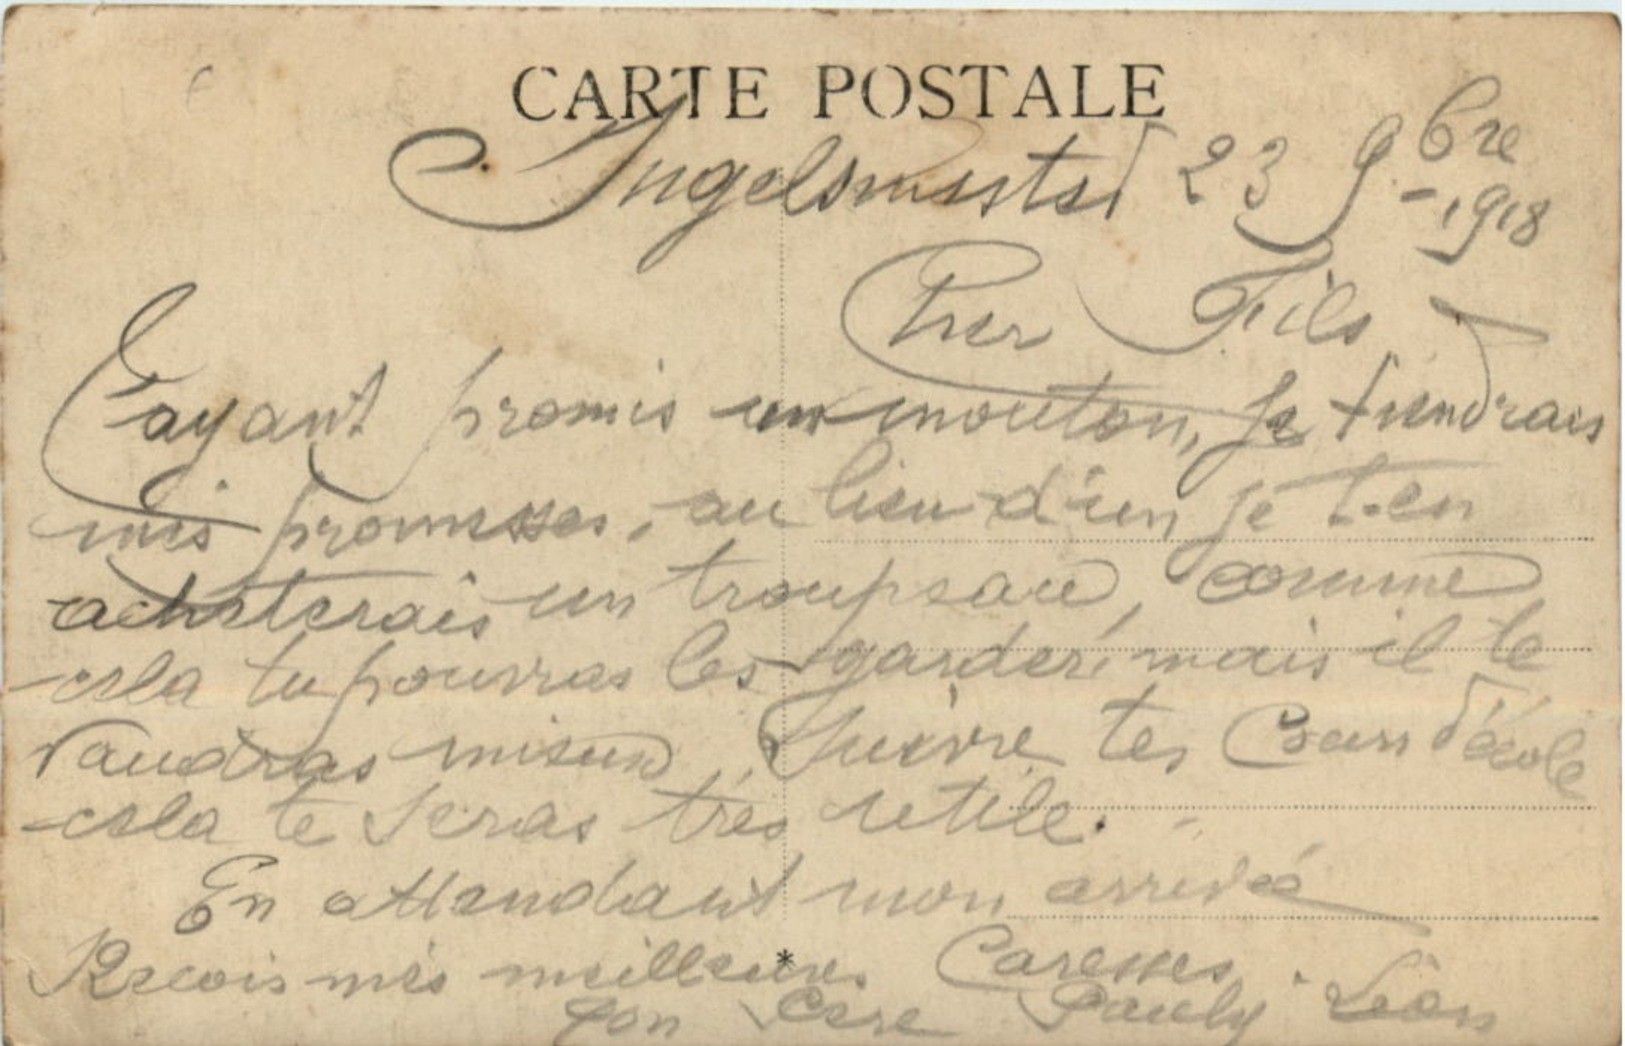 CARTE POSTALE
Ingelsmunster 23 9bre
-1918
Cher Fils
T'ayant promis un mouton, je tiendrais
mes promesses, au lieu d'un je t'en
achèterais un troupeau, comme
cela tu pourras les garder, mais il te
vaudras mieux suivre tes Cours d'école
cela te seras très utile.
En attendant mon arrivée
Recois mes meilleures Caresses.
ton Père Pauly Léon